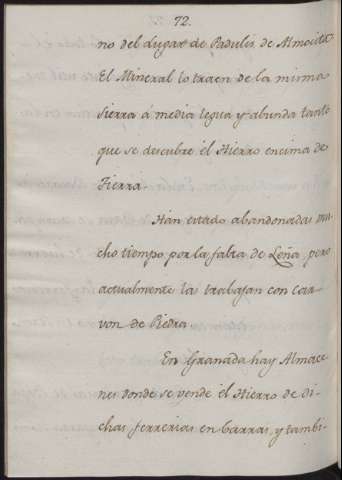 72.
no del Lugar de Padulis de Almocita
El Mineral lo traen de la misma
Sierra á media legua y abunda tanto
que se descubre el Hierro encima de
Tierra.
Han estado abandonadas mu-
cho tiempo por la falta de Leña, pero
actualmente las trabajan con Car-
von de Piedra
En Granada hay Almace-
nes donde se vende el Hierro de di-
chas ferrerias en barras, y tambi-